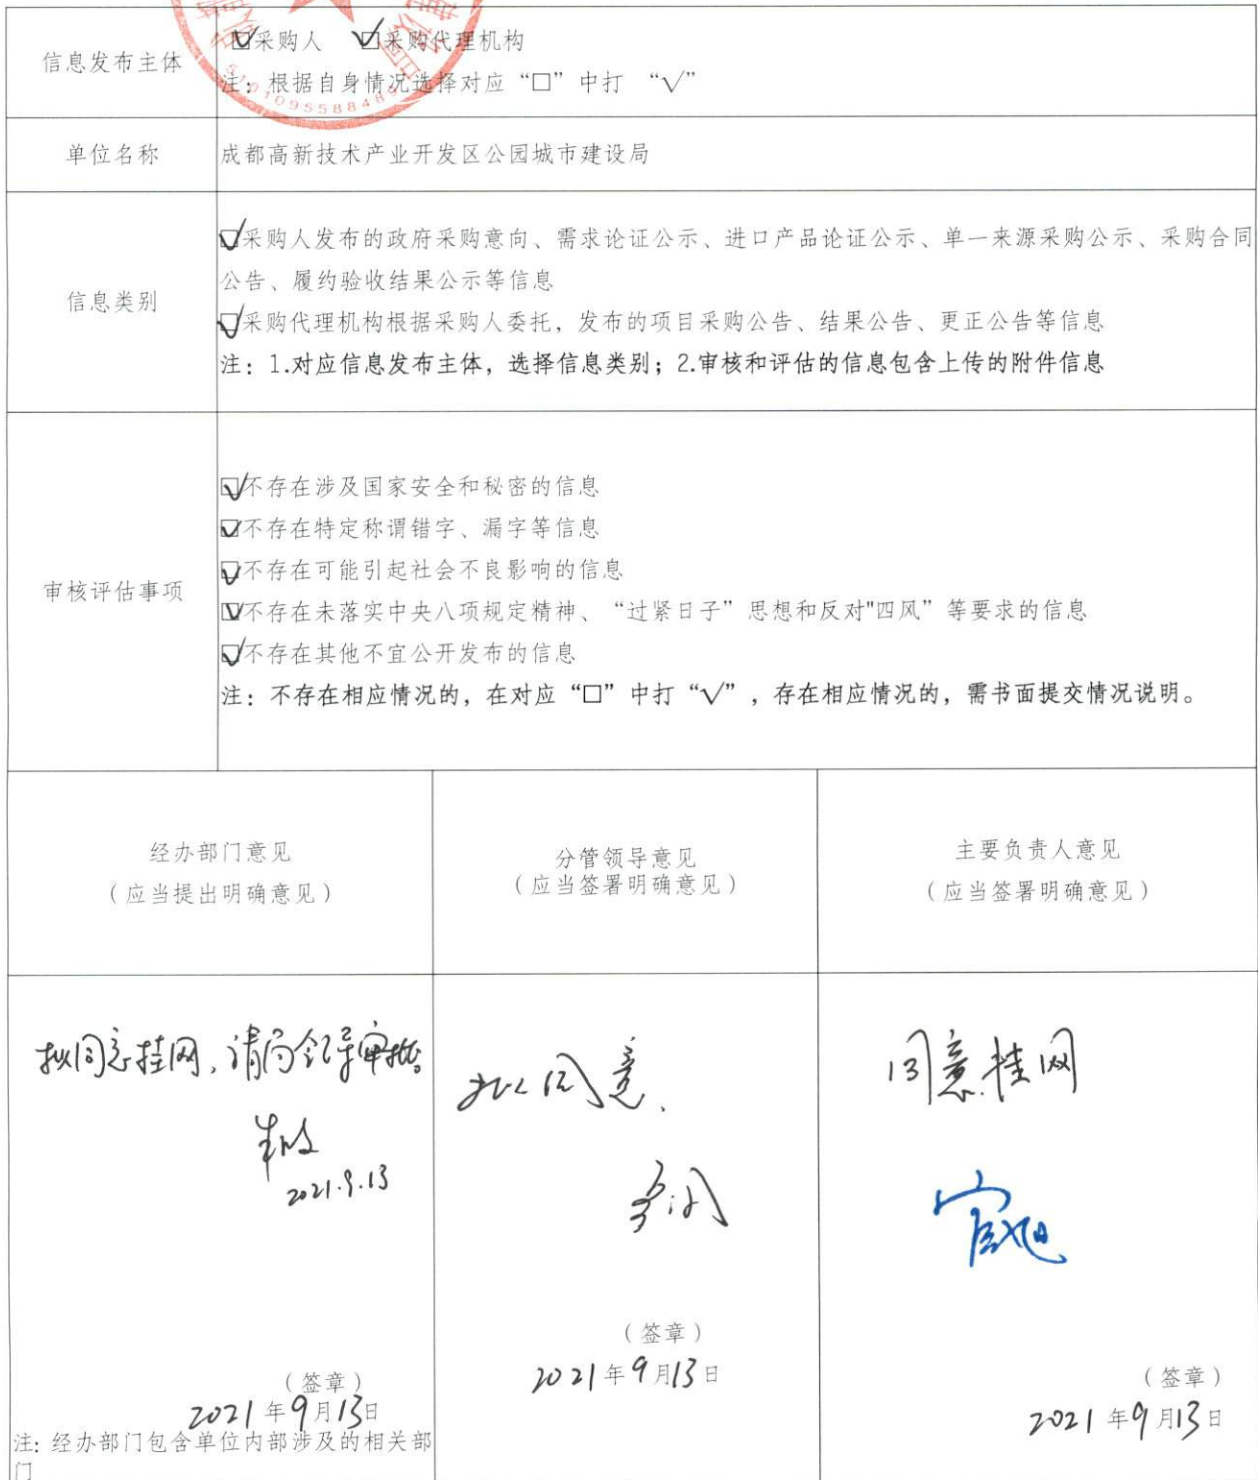 信息发布主体
☑采购人 ☑采购代理机构
注：根据自身情况选择对应“□”中打 “√”
5101095588489
单位名称
成都高新技术产业开发区公园城市建设局
信息类别
☑采购人发布的政府采购意向、需求论证公示、进口产品论证公示、单一来源采购公示、采购合同
公告、履约验收结果公示等信息
☑采购代理机构根据采购人委托，发布的项目采购公告、结果公告、更正公告等信息
注：1.对应信息发布主体，选择信息类别；2.审核和评估的信息包含上传的附件信息
审核评估事项
☑不存在涉及国家安全和秘密的信息
☑不存在特定称谓错字、漏字等信息
☑不存在可能引起社会不良影响的信息
☑不存在未落实中央八项规定精神、“过紧日子”思想和反对"四风”等要求的信息
☑不存在其他不宜公开发布的信息
注：不存在相应情况的，在对应“□”中打“√”，存在相应情况的，需书面提交情况说明。
经办部门意见
（应当提出明确意见）
分管领导意见
（应当签署明确意见）
主要负责人意见
（应当签署明确意见）
拟同意挂网，请局领导审批。
2021.9.13
（签章）
2021年9月13日
注：经办部门包含单位内部涉及的相关部
门
拟同意.
（签章）
2021年9月13日
同意挂网
（签章）
2021年9月13日